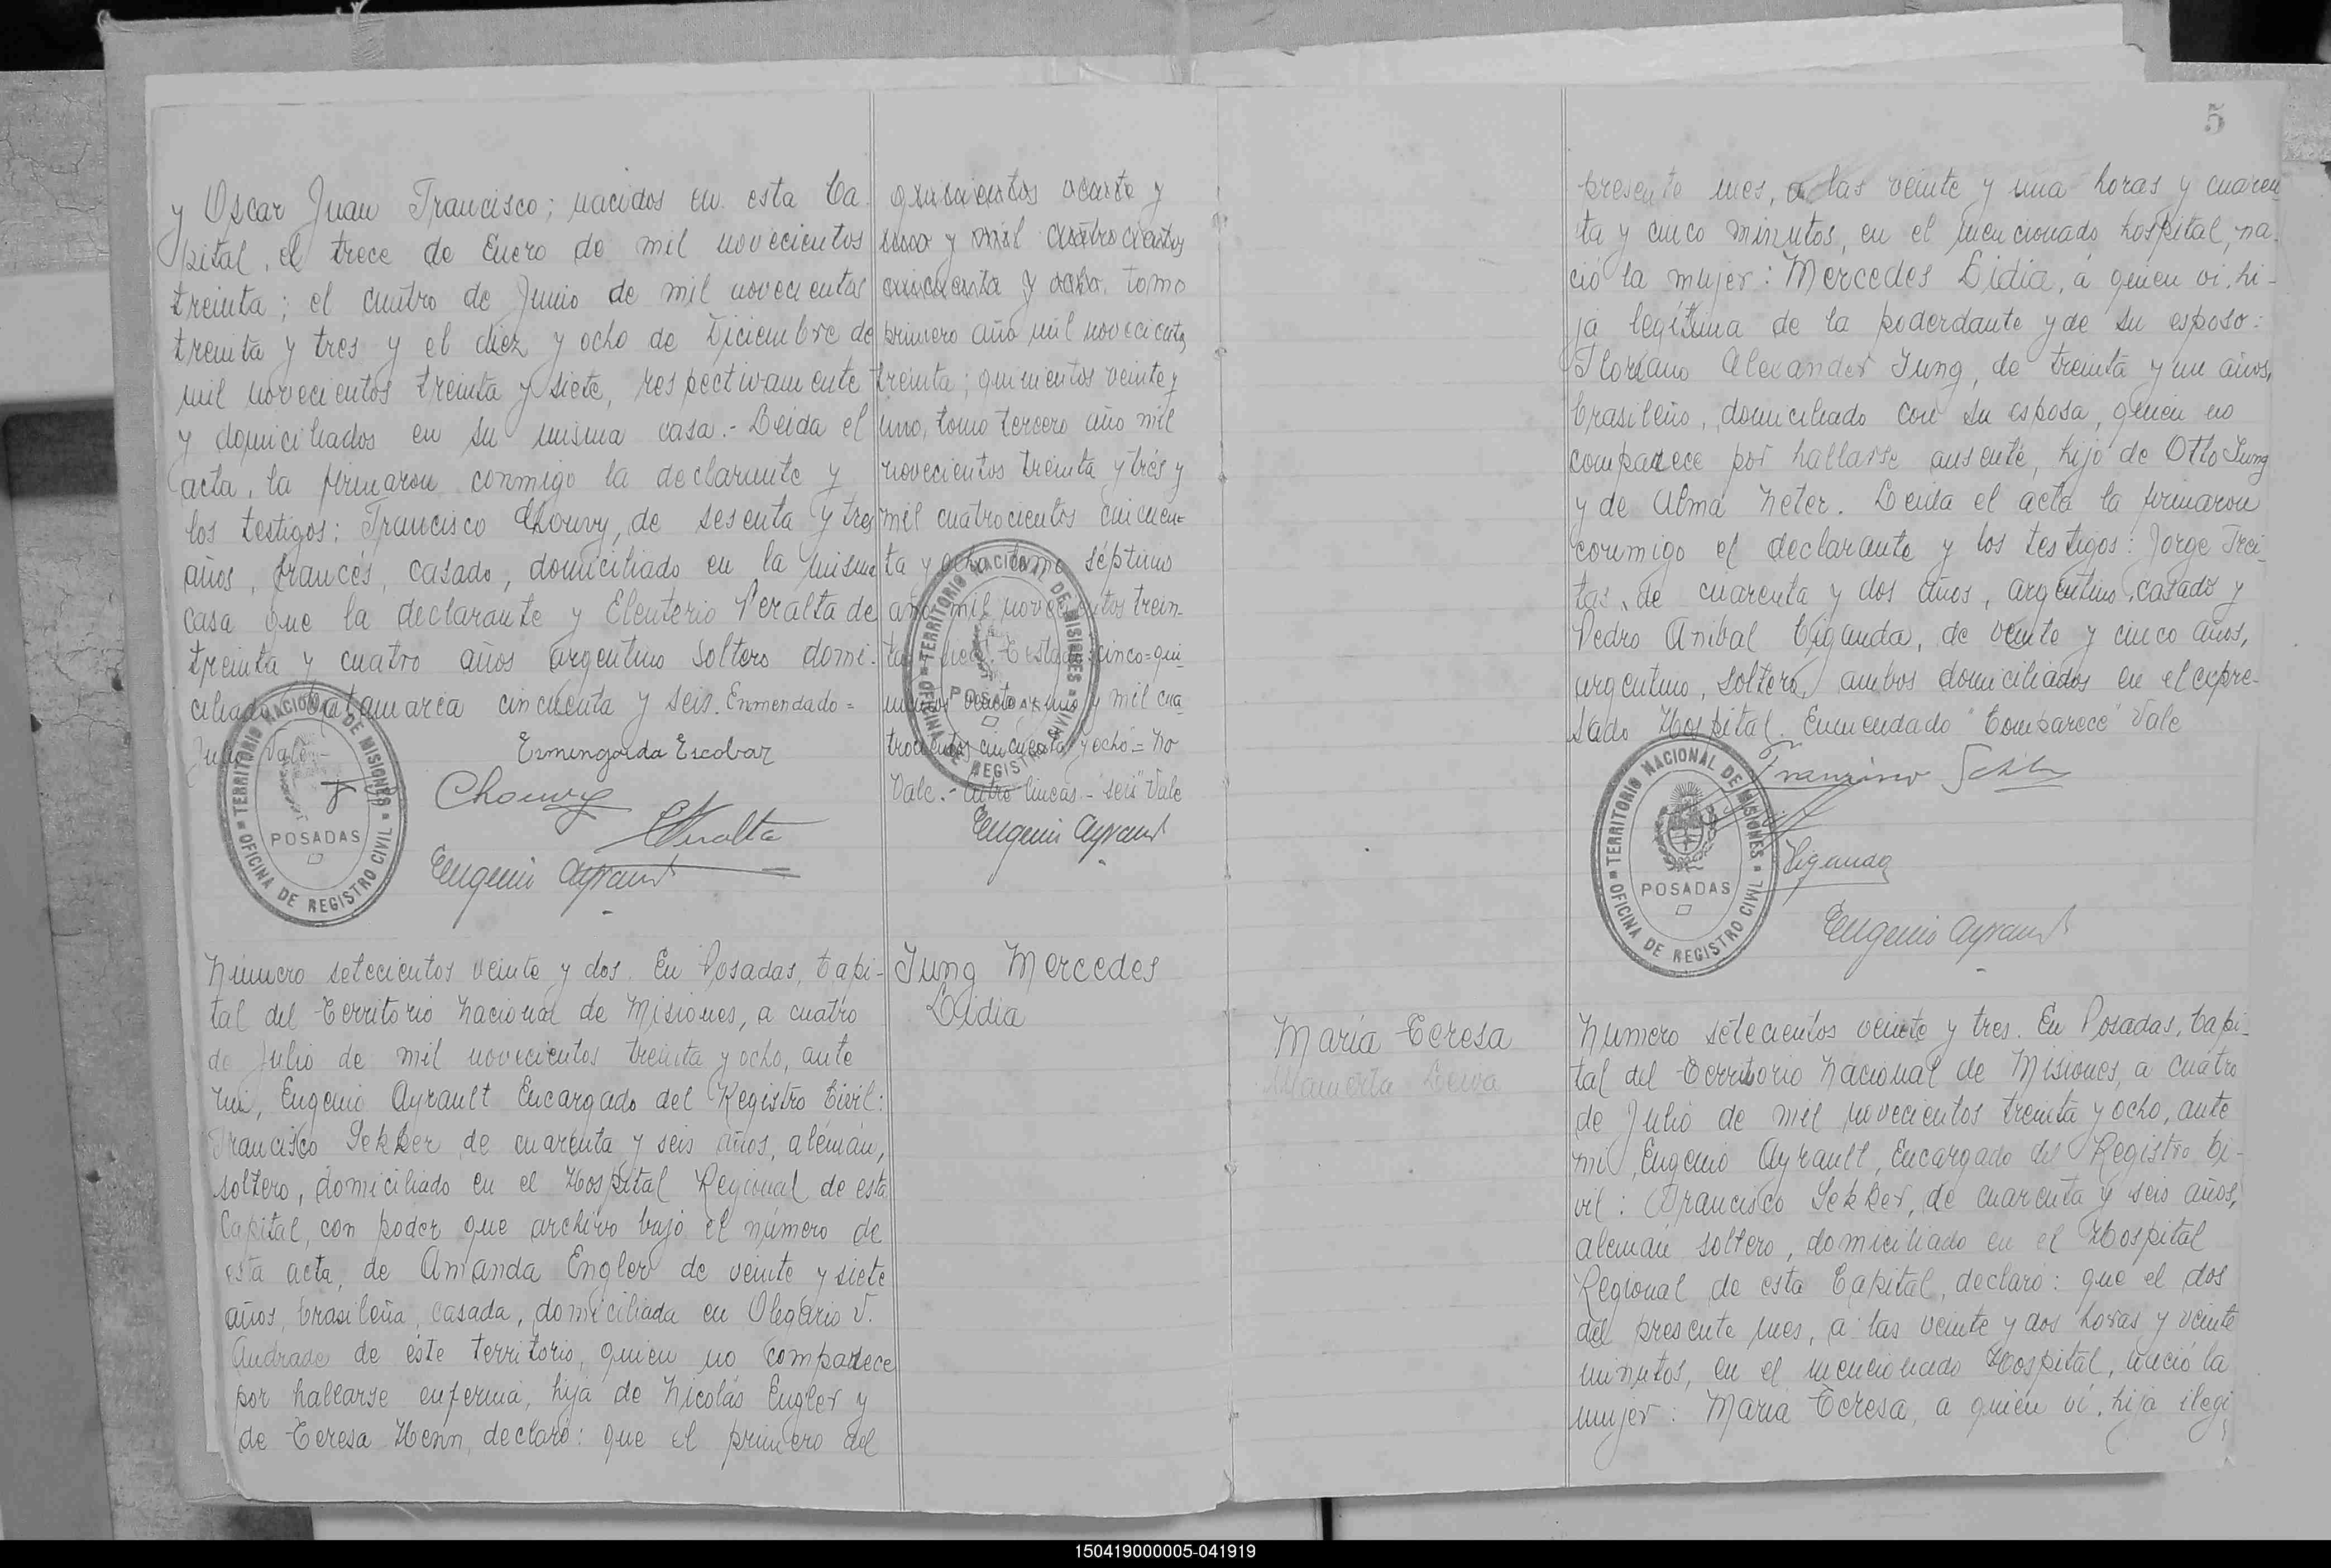 y Oscar Juan Francisco; nacidos en esta Ca
pital, el trece de Enero de mil novecientos
treinta; el cuatro de Junio de mil novecientos
treinta y tres y el diez y ocho de Diciembre de
mil novecientos treinta y siete, respectivamente
y domiciliados en su misma casa.- Leida el
acta, la firmaron conmigo la declarante y
los testigos: Francisco Chouvy, de sesenta y tres
años, francés, casado, domiciliado en la misma
casa que la declarante y Eleuterio Peralta de
treinta y cuatro años argentino soltero domi-
ciliado Catamarca cincuenta y seis. Enmendado =
Vale.-
Ermengarda Escobar
Chouvy
EPeralta
Eugenio Ayrault
OFICINA DE REGISTRO CIVIL TERRITORIO NACIONAL DE MISIONES
POSADAS
quinientos veinte y
uno y mil cuatrocientos
cincuenta y ocho. tomo
primero año mil novecientos
treinta; quinientos veinte y
uno, tomo tercero año mil
novecientos treinta y tres y
mil cuatrocientos cincuen=
ta y ocho tomo séptimo
año mil novecientos trein-
cinco=qui-
y mil cua-
trocientos cincuenta y ocho = No
Vale.- Entre lineas - "seis" Vale
Eugenio Ayrault
OFICINA DE REGISTRO CIVIL TERRITORIO NACIONAL DE MISIONES
POSADAS
Número setecientos veinte y dos. En Posadas, Capi-
tal del Territorio Nacional de Misiones, a cuatro
de Julio de mil novecientos treinta y ocho, ante
mi, Eugenio Ayrault Encargado del Registro Civil:
Francisco Sekker de cuarenta y seis años, alemán,
soltero, domiciliado en el Hospital Regional de esta
Capital, con poder que archivo bajo el número de
esta acta, de Amanda Engler de veinte y siete
años, brasileña, casada, domiciliada en Olegario V.
Andrade de éste territorio, quien no comparece
por hallarse enferma, hija de Nicolás Engler y
de Teresa Henn, declaró: que el primero del
Jung Mercedes
Lidia
5
presente mes, a las veinte y una horas y cuaren
ta y cinco minutos, en el mencionado hospital, na-
ció la mujer: Mercedes Lidia, á quien vi, hi-
ja legítima de la poderdante y de su esposo:
Floriano Alexander Jung, de treinta y un años,
brasileño, domiciliado con su esposa, quien no
comparece por hallarse ausente, hijo de Otto Jung
y de Alma Neter. Leida el acta la firmaron
conmigo el declarante y los testigos: Jorge Frei-
tas, de cuarenta y dos años, argentino, casado y
Pedro Anibal Viganda, de veinte y cinco años,
argentino, soltero, ambos domiciliados en el expre-
sado Hospital. Enmendado "Comparece" Vale
Viganda
Eugenio Ayrault
OFICINA DE REGISTRO CIVIL TERRITORIO NACIONAL DE MISIONES
POSADAS
María Teresa
Numero setecientos veinte y tres. En Posadas, Capi-
tal del Territorio Nacional de Misiones, a cuatro
de Julio de mil novecientos treinta y ocho, ante
mi, Eugenio Ayrault, Encargado del Registro Ci-
vil: Francisco Sekker, de cuarenta y seis años,
aleman soltero, domiciliado en el Hospital
Regional de esta Capital, declaró: que el dos
del presente mes, a las veinte y dos horas y veinte
minutos, en el mencionado Hospital, nació la
mujer: María Teresa, a quien vi, hija ilegi
150419000005-041919